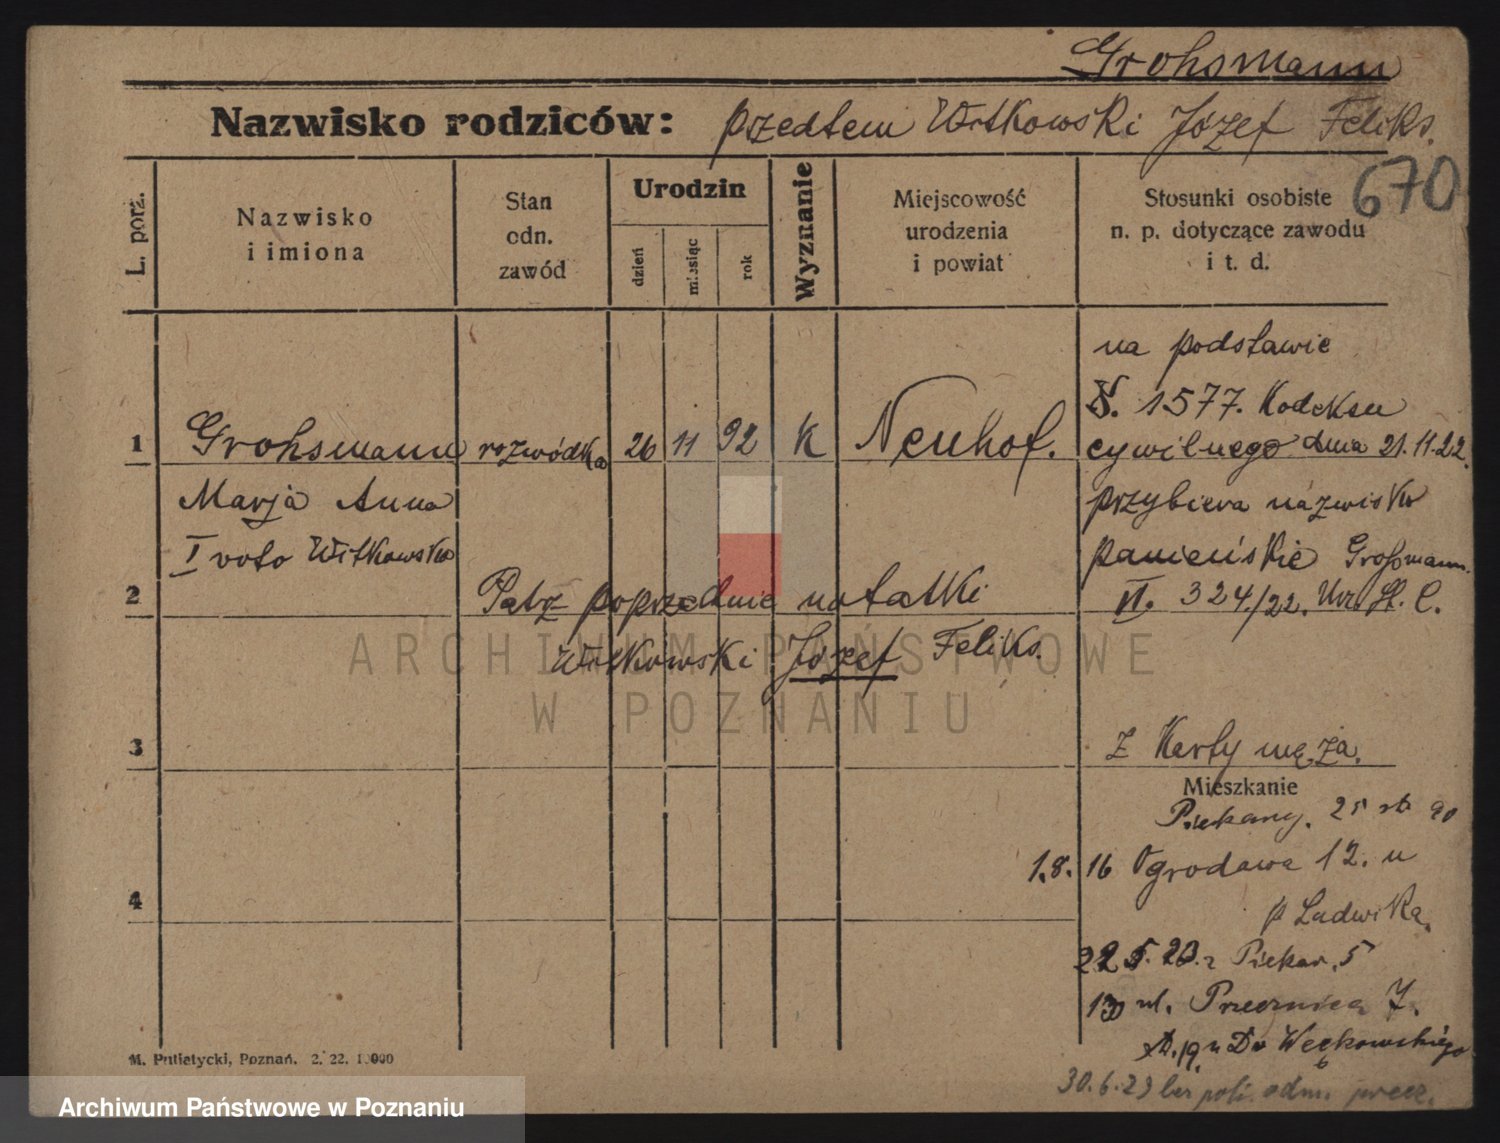 Grohsmann
Nazwisko rodziców: przedtem Witkowski Józef Feliks.
670
L. porz.
Nazwisko
i imiona
Stan
odn.
zawód
Urodzin
dzień
miesiąc
rok
Wyznanie
Miejscowość
urodzenia
i powiat
Stosunki osobiste
n. p. dotyczące zawodu
i t. d.
na podstawie
§. 1577. Kodeksu
1 Grohsmann rozwódka 26 11 92 K Neuhof. cywilnego dnia 21.11.22.
Marja Anna przybiera nazwisko
I voto Witkowska panieńskie Großmann.
2 Patrz poprzednie notatki VI. 324/22. Urz. St. C.
Witkowski Józef Feliks.
ARCHIWUM PAŃSTWOWE
W POZNANIU
3 z Karty męża.
Mieszkanie
Piekary. 25
1.8. 16 Ogrodowa 12. u
4 p Ludwika.
22 5. 23. Piekar. 5
13 ul. Przecznica 7.
u Dr Węckowskiego
30.6.23 odm.
M. Putiatycki, Poznań. 2. 22. 1000
Archiwum Państwowe w Poznaniu